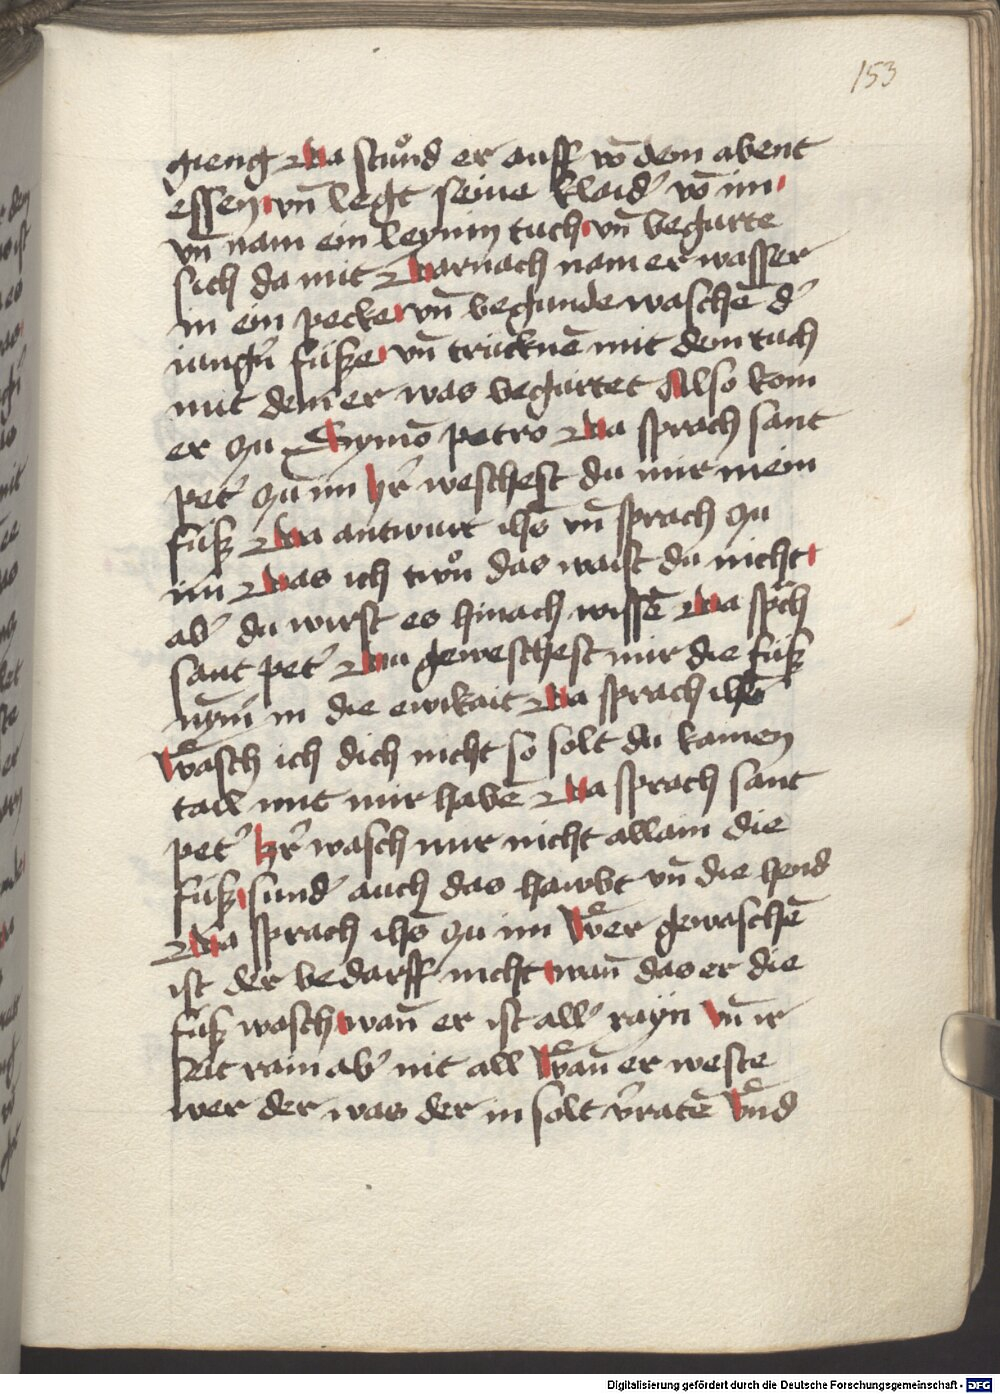 153
gieng Da stuͦnd er auff vō dem abent
essen vn̄ legt seine klaid' vō im
vn̄ nam ein leynin tuch vn̄ begurte
sich da mit Darnach nam er wasser
in ein pecke vn̄ begunde waschē d'
iung'n füsze vn̄ trücknē mit dem tuch
mit dem er was begürtet Also kom
er zu Symō petro Da sprach sant
pet' zu im h'r weschest du mir mein
füsz Da antwurt ihs̄ vn̄ sprach zu
im Das ich twoͧn das waist du nicht
ab' du wirst es hinach wissē Da sp'ch
sant pet' Du geweschest mir die füsz
nym' in die ewikait Da sprach ihs̄
Wasch ich dich nicht so solt du kainen
tail mit mir habē Da sprach sant
pet' h'r wasch mir nicht allain die
füsz sund' auch das hawbt vn̄ die hend
Da sprach ihs̄ zu im Wer gewaschē
ist der bedarff nicht wan̄ das er die
füsz wasch wan̄ er ist all' rayn vn̄ ir
seit rain ab' nit all Wan̄ er weste
wer der was der in solt v'ratē Vnd
Digitalisierung gefördert durch die Deutsche Forschungsgemeinschaft - DFG